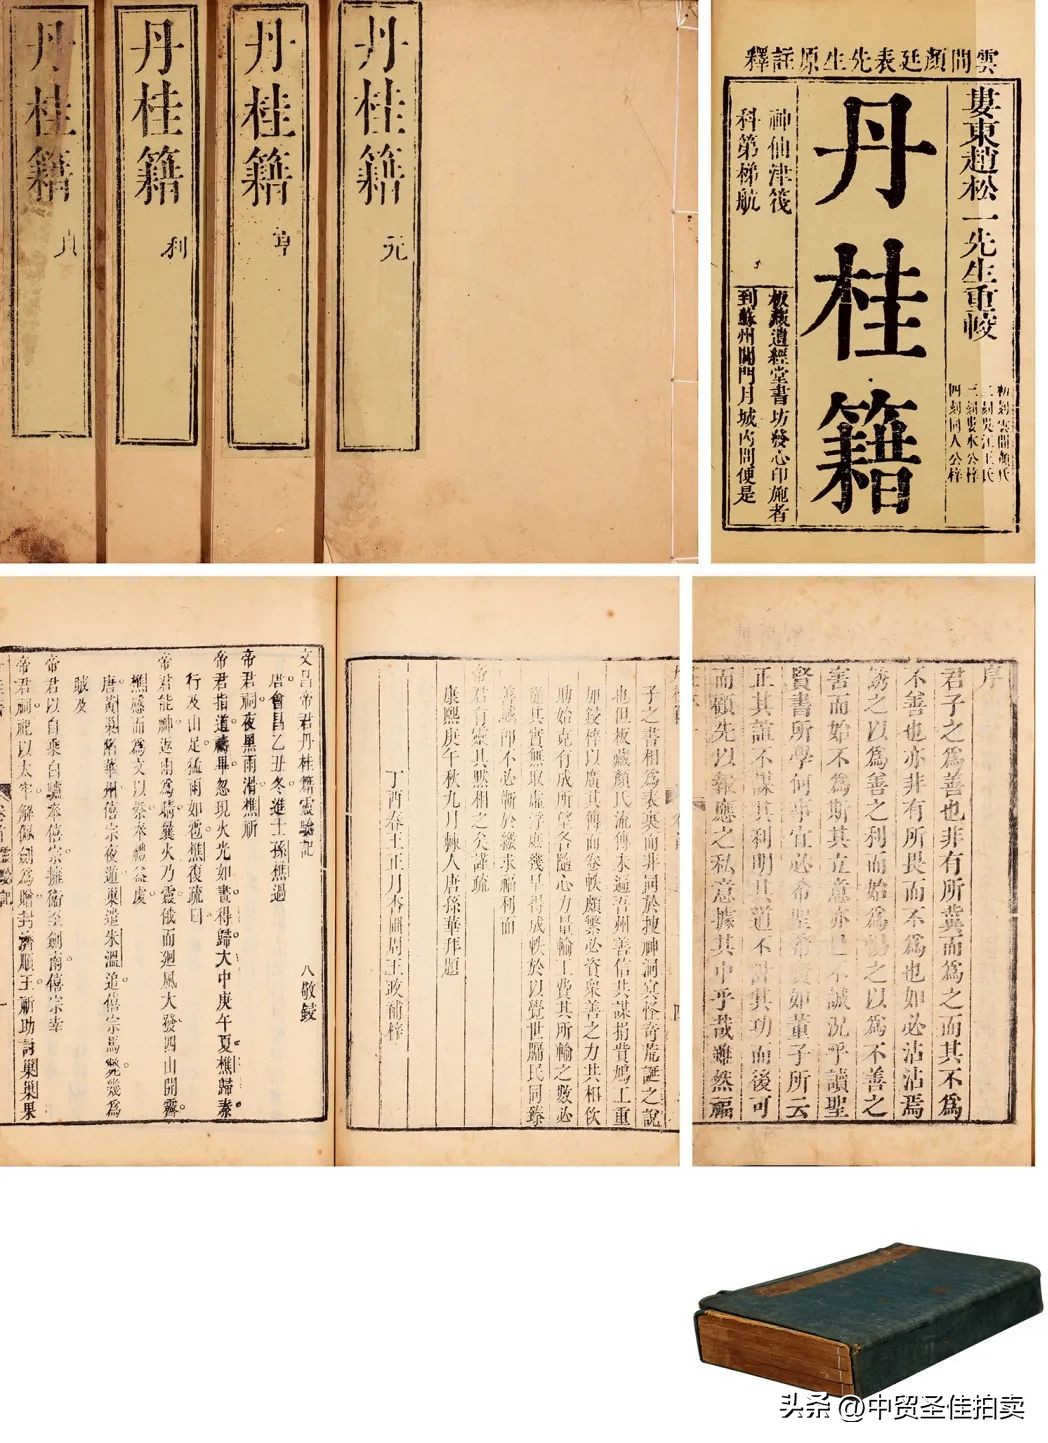 丹桂籍
元
丹桂籍
亨
丹桂籍
利
丹桂籍
貞
雲間顏廷表先生原註釋
婁東趙松一先生重校
初刻雲間顏氏
二刻吳江王氏
三刻婁水公梓
四刻同人公梓
丹桂籍
神仙津筏
科第梯航
板藏遺經堂書坊發心印施者
到蘇州閶門月城內問便是
序
君子之爲善也非有所冀而爲之而其不爲
不善也亦非有所畏而不爲也如必沾沾焉
誘之以爲善之利而始爲惕之以爲不善之
害而始不爲斯其立意亦已不誠況乎讀聖
賢書所學何事宜必希聖希賢如董子所云
正其誼不謀其利明其道不計其功而後可
而顧先以報應之私意據其中乎哉雖然福
子之書相爲表裏而非詞於搜神洞冥怪奇荒誕之說
也但板藏顏氏流傳未遍吾州善信共謀捐貲鳩工重
加鋟梓以廣其傳而卷帙頗繁必資衆善之力共相佽
助始克有成所望各隨心力量輸工費其所輸之數必
應其實無取虛浮庶幾早得成帙於以覺世牖民同臻
善域即不必蘄於繳求福利而
帝君有靈其默相之矣謹疏
康熙庚午秋九月棘人唐孫華拜題
丁酉春王正月杏圃周王政補梓
文昌帝君丹桂籍靈驗記
八敬鋟
唐會昌乙丑冬進士孫樵過
帝君祠夜黑雨滑樵祈
帝君指道禱畢忽現火光如晝得歸大中庚午夏樵歸秦
行及山足猛雨如雹樵復疏曰
帝君能神返雨爲晴曩火乃靈俄而廻風大發四山開霽
樵感而爲文以祭奉禮益虔
唐黃巢陷華州僖宗夜遁巢遣朱溫追僖宗爲㷀幾爲
賊及
帝君以自乘白驢奉僖宗擁衛至劍南僖宗幸
帝君祠祀以太牢解佩劍爲贈封濟順王祈功討巢巢果
头条 @中贸圣佳拍卖